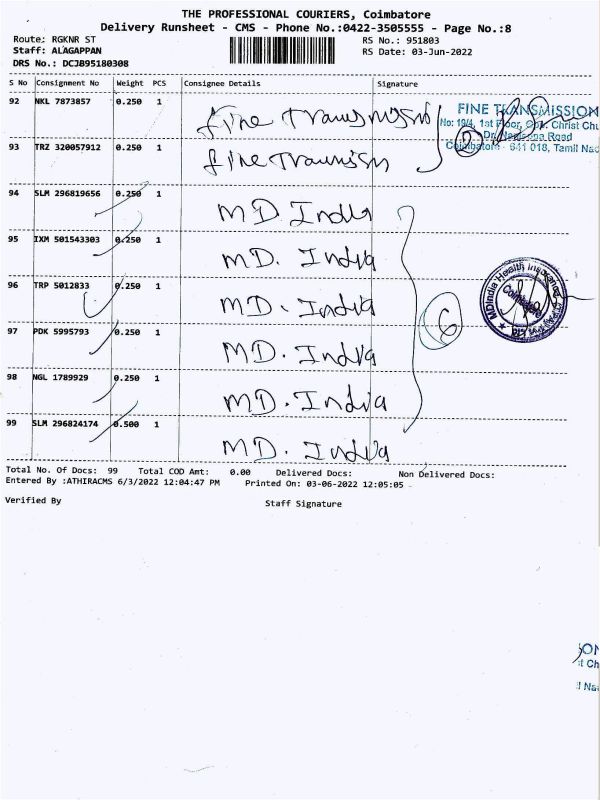 THE PROFESSIONAL COURIERS, Coimbatore
Delivery Runsheet - CMS - Phone No.:0422-3505555 - Page No.:8
Route: RGKNR ST RS No.: 951803
Staff: ALAGAPPAN RS Date: 03-Jun-2022
DRS No.: DCJB95180308
S No Consignment No Weight PCS Consignee Details Signature
92 NKL 7873857 0.250 1 fine Transmission FINE TRANSMISSION
No: 19/4, 1st Floor, Opp. Christ Chu
93 TRZ 320057912 0.250 1 fine 2 Road
Coimbatore - 641 018, Tamil Nad
94 SLM 296819656 0.250 1 MD. India
95 IXM 501543303 0.250 1 MD. India
96 TRP 5012833 0.250 1 MD. India 6 MDIndia Health Insurance Coimbatore
97 PDK 5995793 0.250 1 MD. India
98 NGL 1789929 0.250 1 MD. India
99 SLM 296824174 0.500 1 MD. India
Total No. Of Docs: 99 Total COD Amt: 0.00 Delivered Docs: Non Delivered Docs:
Entered By :ATHIRACMS 6/3/2022 12:04:47 PM Printed On: 03-06-2022 12:05:05
Verified By Staff Signature
ON
t Ch
Na